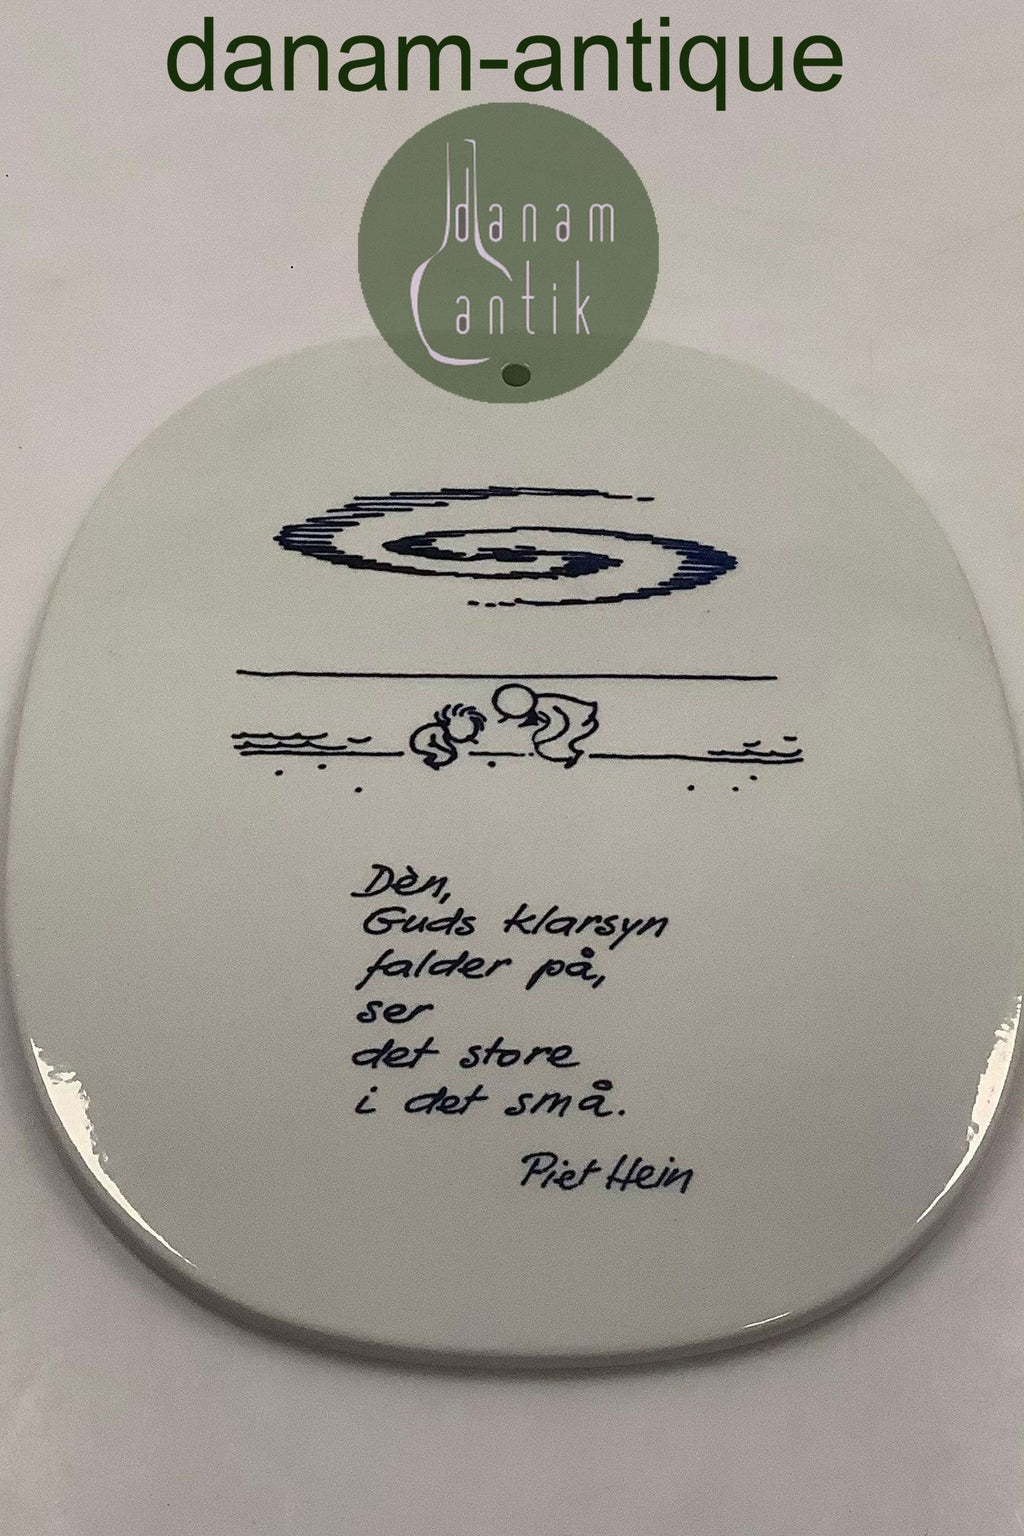 danam-antique
danam
antik
Dèn,
Guds klarsyn
falder på,
ser
det store
i det små.
Piet Hein